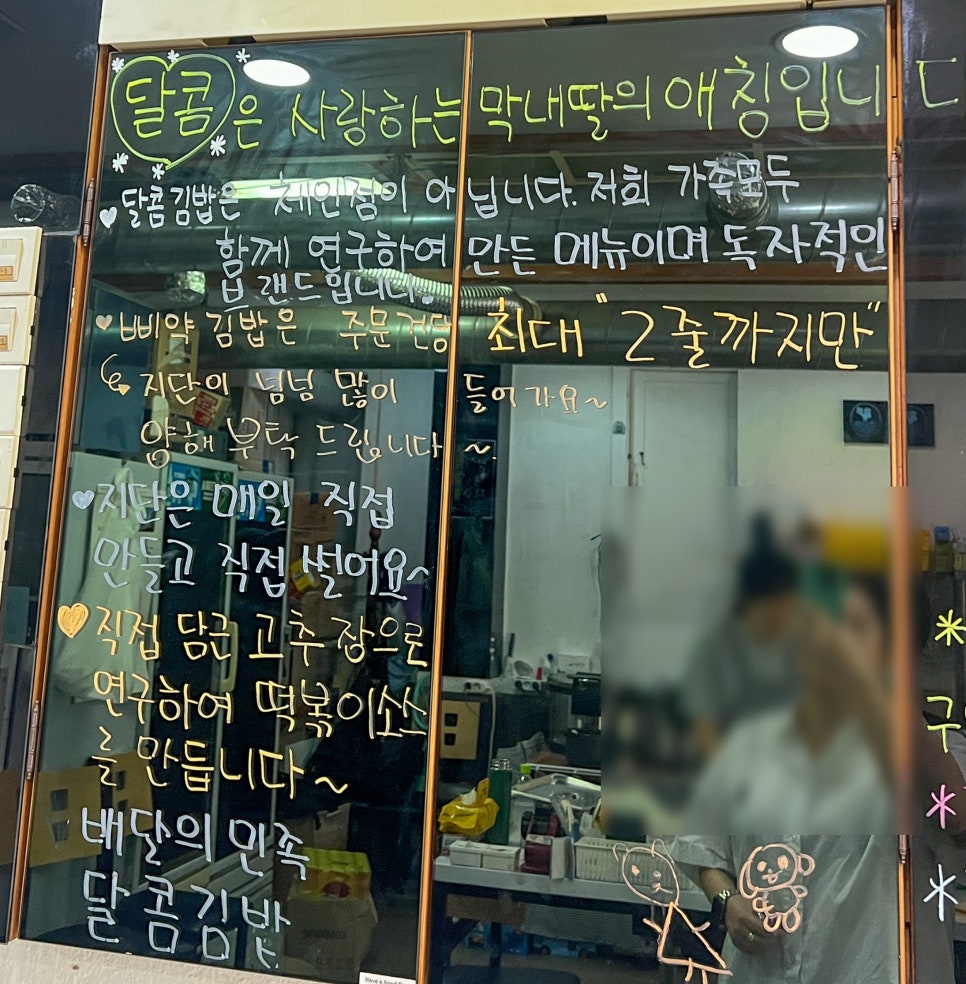 달콤은 사랑하는 막내딸의 애칭입니다
달콤김밥은 체인점이 아닙니다. 저희 가족모두
함께 연구하여 만든 메뉴이며 독자적인
브랜드입니다.
삐약김밥은 주문건당 최대 "2줄까지만"
지단이 넘넘 많이 들어가요~
양해 부탁 드립니다~
지단은 매일 직접
만들고 직접 썰어요~
직접 담근 고추장으로
연구하여 떡볶이소스
를 만듭니다~
배달의민족
달콤김밥